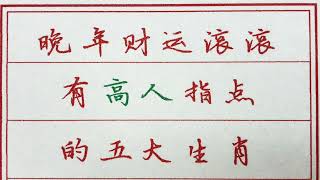 晚年财运滚滚
有高人指点
的五大生肖